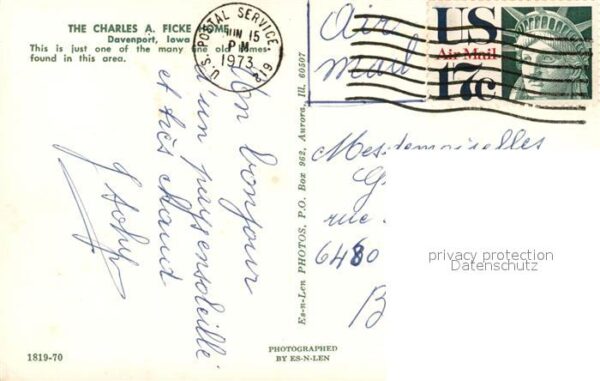 THE CHARLES A. FICKE HOME
Davenport, Iowa
This is just one of the many fine old homes
found in this area.
U.S. POSTAL SERVICE 612
JUN 15
PM
1973
Air
mail
US
Air Mail
17c
Un bonjour
d'un pays ensoleillé
et très chaud
Es-n-Len PHOTOS, P.O. Box 962, Aurora, Ill. 60507
Mesdemoiselles
G
rue
6480
B
privacy protection
Datenschutz
1819-70
PHOTOGRAPHED
BY ES-N-LEN